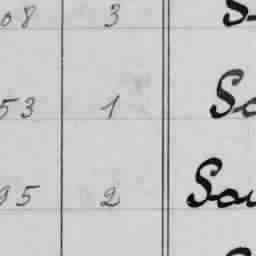 08 3 S
53 1 So
95 2 Sou